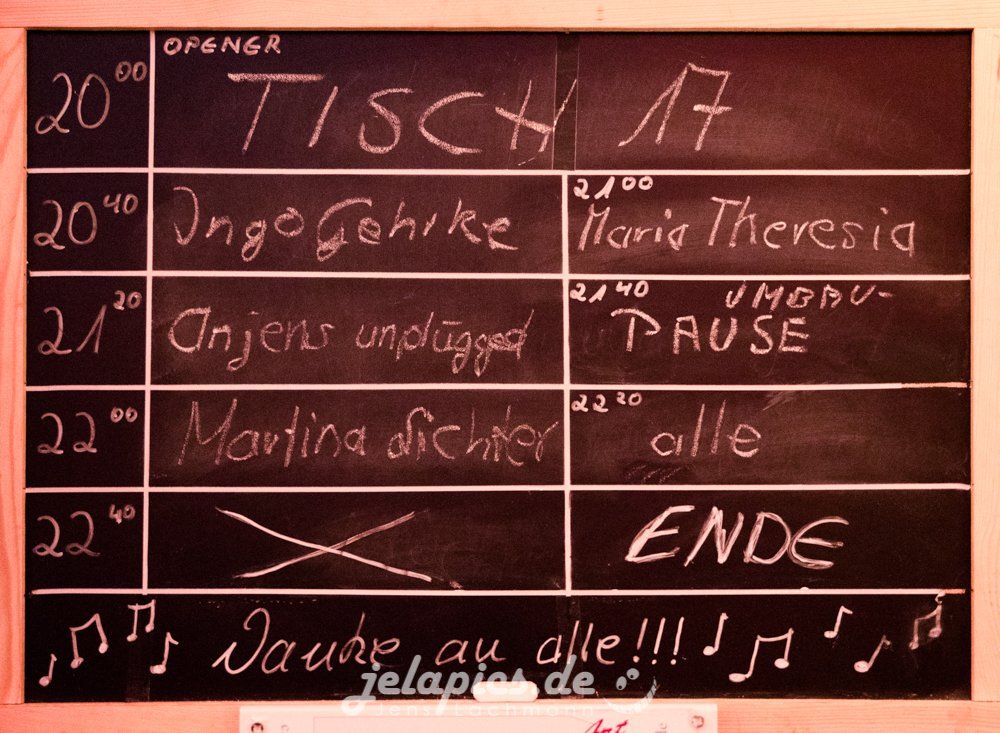 OPENER
20 00 TISCH 17
20 40 Ingo Gehrke 21 00 Maria Theresia
21 20 Anjens unplugged 21 40 UMBAU-
PAUSE
22 00 Martina Dichter 22 20 alle
22 40 ENDE
Danke an alle!!!
jelapics.de
Jens Lachmann